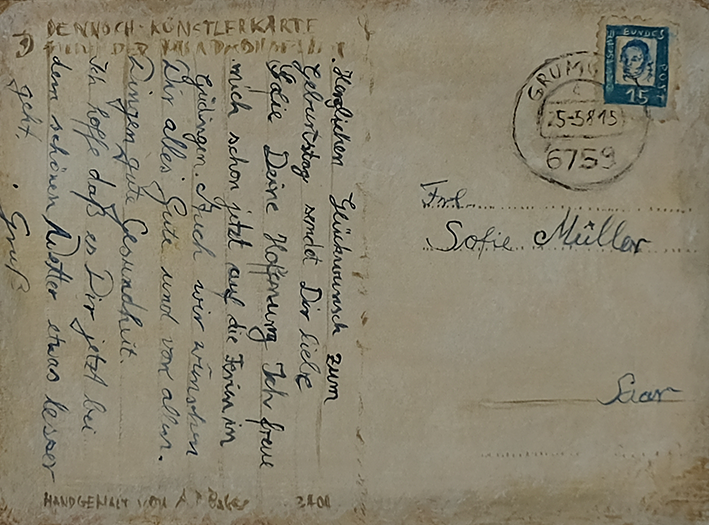 DENNOCH-KÜNSTLERKARTE
Herzlichen Glückwunsch zum
Geburtstag sendet Dir liebe
Sofie Deine Hoffnung Ich freue
mich schon jetzt auf die Ferien in
Güdingen. Auch wir wünschen
Dir alles Gute und vor allen.
Dingen gute Gesundheit.
Ich hoffe daß es Dir jetzt bei
dem schönen Wetter etwas besser
geht.
. Gruß
HANDGEMALT VON A.
DEUTSCHE BUNDES POST
15
-5-5815
6759
Sofie Müller
Saar